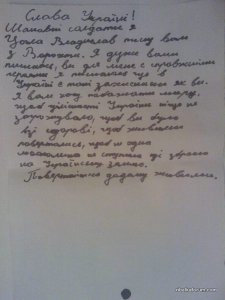 Слава Україні!
Шановні солдати я
Цьопа Владислав пишу вам
з Ворохти. Я дуже вами
пишаюсь, ви для мене є справжніми
героями я пишаюсь що в
Україні є такі захисники як ви.
Я вам хочу побажати миру,
щоб цілісності України ніщо не
загрожувало, щоб ви були
всі здорові, щоб живими
повертались, щоб ні одна
не ступила зі зброєю
на Українську землю.
Повертайтесь додому живими.